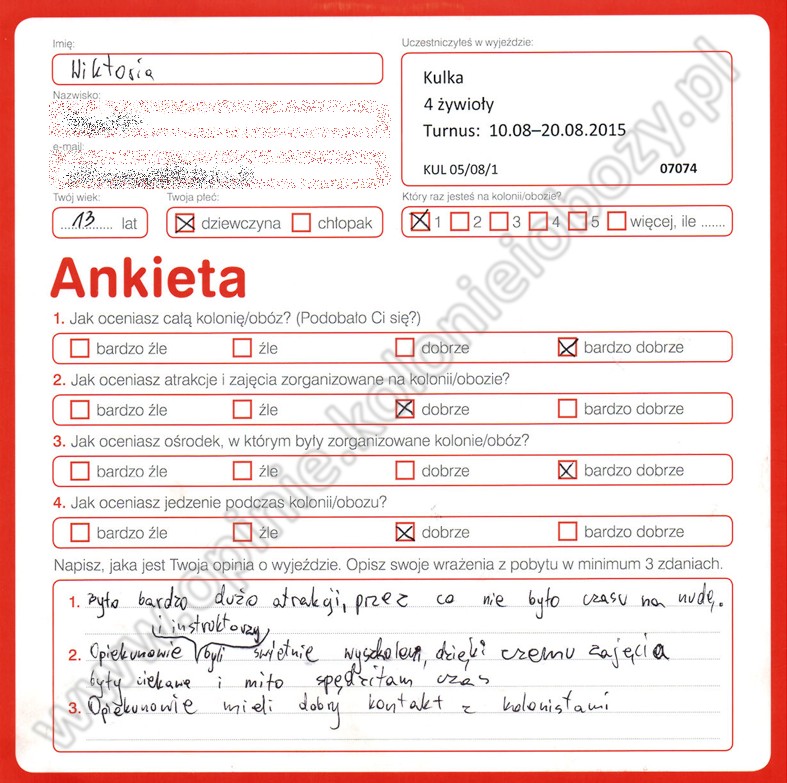 Imię:
Wiktoria
Nazwisko:
e-mail:
Twój wiek:
13 lat
Twoja płeć:
dziewczyna chłopak
Uczestniczyłeś w wyjeździe:
Kulka
4 żywioły
Turnus: 10.08–20.08.2015
KUL 05/08/1 07074
Który raz jesteś na kolonii/obozie?
1 2 3 4 5 więcej, ile .......
Ankieta
1. Jak oceniasz całą kolonię/obóz? (Podobało Ci się?)
bardzo źle źle dobrze bardzo dobrze
2. Jak oceniasz atrakcje i zajęcia zorganizowane na kolonii/obozie?
bardzo źle źle dobrze bardzo dobrze
3. Jak oceniasz ośrodek, w którym były zorganizowane kolonie/obóz?
bardzo źle źle dobrze bardzo dobrze
4. Jak oceniasz jedzenie podczas kolonii/obozu?
bardzo źle źle dobrze bardzo dobrze
Napisz, jaka jest Twoja opinia o wyjeździe. Opisz swoje wrażenia z pobytu w minimum 3 zdaniach.
1. Było bardzo dużo atrakcji, przez co nie było czasu na nudę.
i instruktorzy
2. Opiekunowie byli świetnie wyszkoleni, dzięki czemu zajęcia
były ciekawe i miło spędziłam czas
3. Opiekunowie mieli dobry kontakt z kolonistami
www.opinie.kolonieiobozy.pl